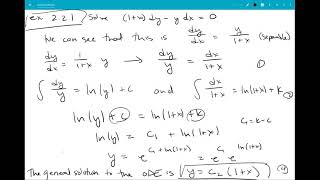 ex 2.2.1 Solve (1+x) dy - y dx = 0
We can see that this is dy/dx = y/(1+x) (separable)
dy/dx = 1/(1+x) y → dy/y = dx/(1+x)
∫ dy/y = ln|y| + c and ∫ dx/(1+x) = ln|1+x| + k
ln|y| + c = ln|1+x| + k
ln|y| = c₁ + ln|1+x| c₁ = k-c
y = e^(c₁ + ln|1+x|) = e^c₁ e^ln|1+x|
The general solution to the ODE is y = c₂ (1+x)